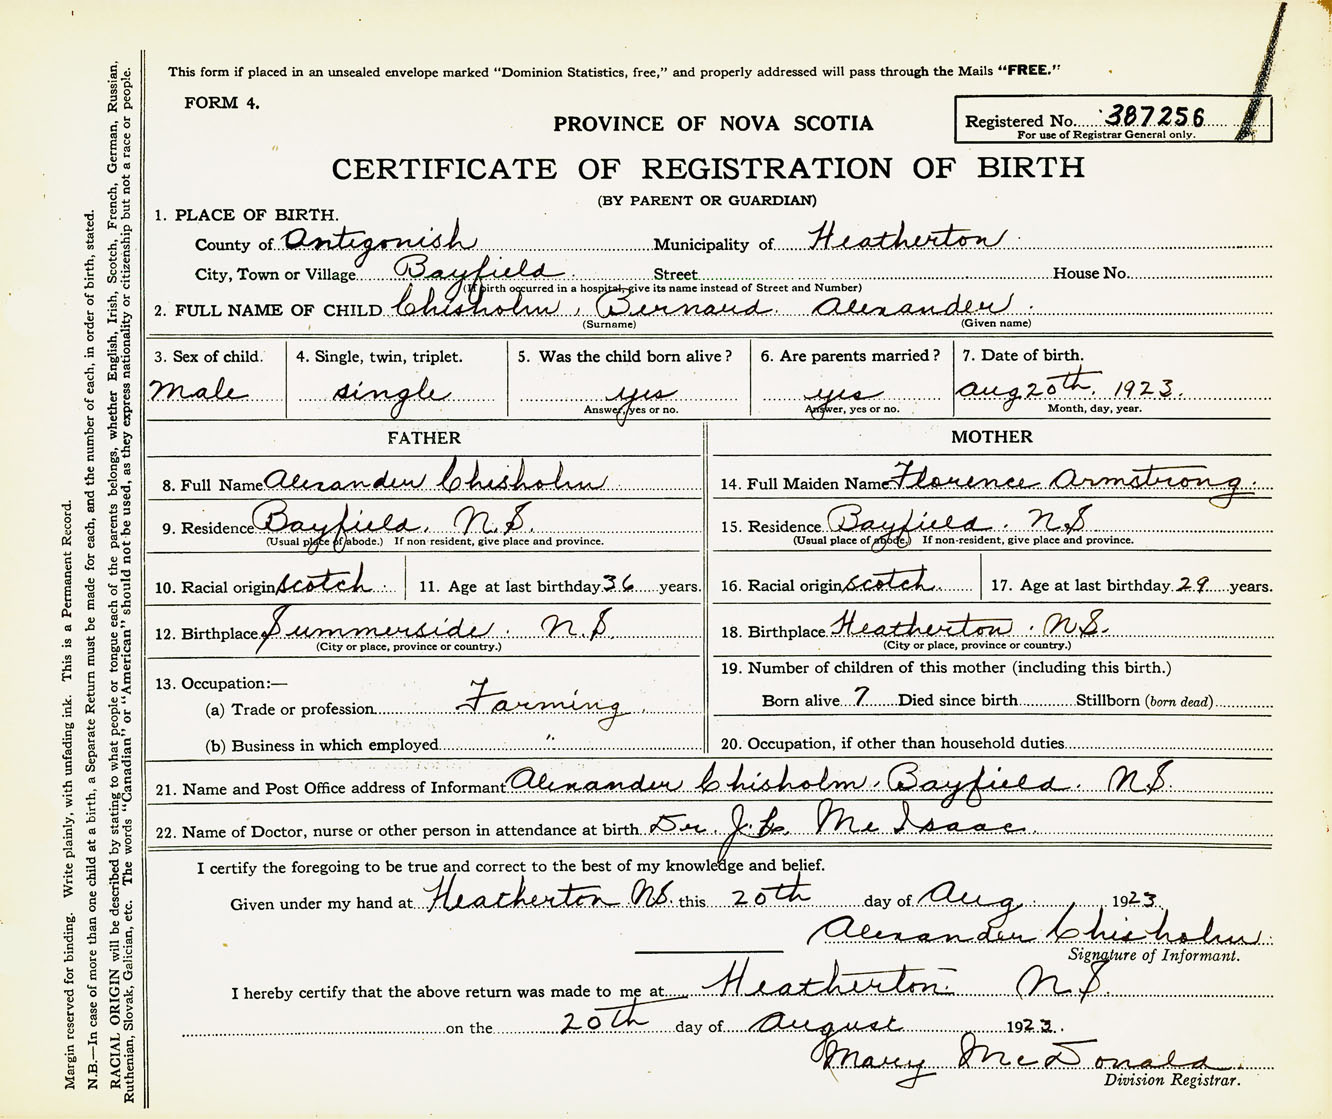 This form if placed in an unsealed envelope marked "Dominion Statistics, free," and properly addressed will pass through the Mails "FREE."
FORM 4.
Registered No. 387256
For use of Registrar General only.
PROVINCE OF NOVA SCOTIA
CERTIFICATE OF REGISTRATION OF BIRTH
(BY PARENT OR GUARDIAN)
1. PLACE OF BIRTH.
County of Antigonish Municipality of Heatherton
City, Town or Village Bayfield Street House No.
(If birth occurred in a hospital, give its name instead of Street and Number)
2. FULL NAME OF CHILD Chisholm, Bernard Alexander
(Surname) (Given name)
3. Sex of child. 4. Single, twin, triplet. 5. Was the child born alive? 6. Are parents married? 7. Date of birth.
Male single yes yes Aug 20th, 1923.
Answer, yes or no. Answer, yes or no. Month, day, year.
FATHER MOTHER
8. Full Name Alexander Chisholm 14. Full Maiden Name Florence Armstrong
9. Residence Bayfield, N.S. 15. Residence Bayfield. N.S
(Usual place of abode.) If non-resident, give place and province. (Usual place of abode.) If non-resident, give place and province.
10. Racial origin scotch 11. Age at last birthday 36 years. 16. Racial origin scotch 17. Age at last birthday 29 years.
12. Birthplace Summerside. N.S. 18. Birthplace Heatherton. N.S.
(City or place, province or country.) (City or place, province or country.)
19. Number of children of this mother (including this birth.)
13. Occupation:—
(a) Trade or profession Farming Born alive 7 Died since birth Stillborn (born dead)
(b) Business in which employed " 20. Occupation, if other than household duties
21. Name and Post Office address of Informant Alexander Chisholm, Bayfield. N.S.
22. Name of Doctor, nurse or other person in attendance at birth Dr. Mc Isaac
I certify the foregoing to be true and correct to the best of my knowledge and belief.
Given under my hand at Heatherton N.S. this 20th day of Aug. 1923.
Alexander Chisholm
Signature of Informant.
I hereby certify that the above return was made to me at Heatherton N.S.
on the 20th day of August 1923.
Mary McDonald
Division Registrar.
Margin reserved for binding. Write plainly, with unfading ink. This is a Permanent Record.
N.B.—In case of more than one child at a birth, a Separate Return must be made for each, and the number of each, in order of birth, stated.
RACIAL ORIGIN will be described by stating to what people or tongue each of the parents belongs, whether English, Irish, Scotch, French, German, Russian,
Ruthenian, Slovak, Galician, etc. The words "Canadian" or "American" should not be used, as they express nationality or citizenship but not a race or people.